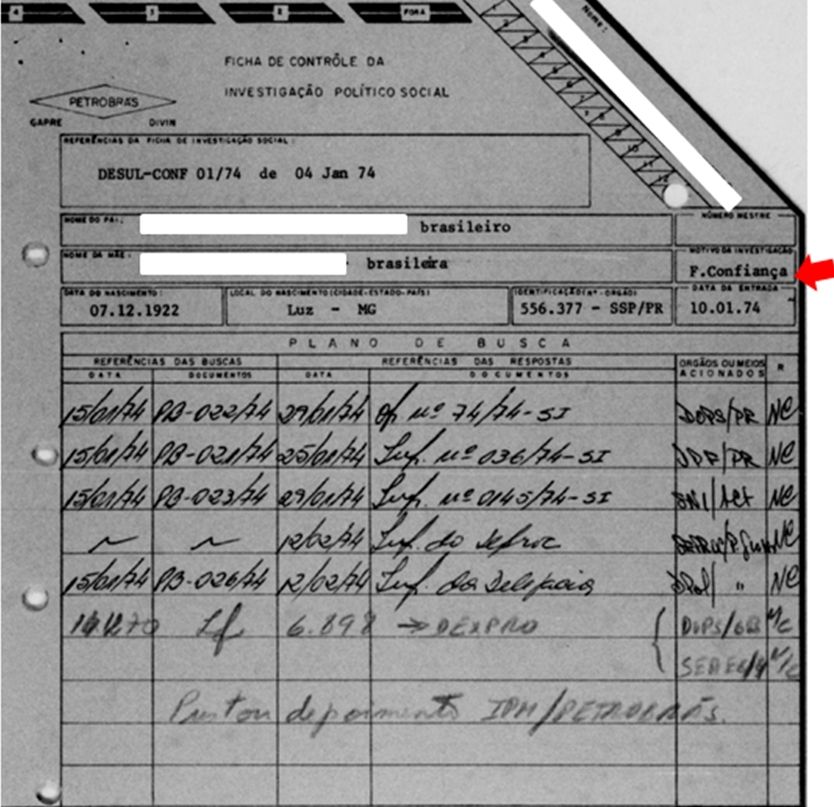 4 3 2 FORA
Nome:
FICHA DE CONTRÔLE DA
INVESTIGAÇÃO POLÍTICO SOCIAL
PETROBRÁS
GAPRE DIVIN
REFERÊNCIAS DA FICHA DE INVESTIGAÇÃO SOCIAL:
DESUL-CONF 01/74 de 04 Jan 74
NOME DO PAI: brasileiro
NÚMERO MESTRE
NOME DA MÃE: brasileira
MOTIVO DA INVESTIGAÇÃO
F.Confiança
DATA DO NASCIMENTO: LOCAL DO NASCIMENTO (CIDADE-ESTADO-PAÍS) IDENTIFICAÇÃO (Nº-ORGÃO) DATA DA ENTRADA
07.12.1922 Luz - MG 556.377 - SSP/PR 10.01.74
PLANO DE BUSCA
REFERÊNCIAS DAS BUSCAS REFERÊNCIAS DAS RESPOSTAS ORGÃOS OU MEIOS ACIONADOS R
DATA DOCUMENTOS DATA DOCUMENTOS
15/01/74 PB-022/74 29/01/74 Of. nº 74/74-SI DOPS/PR NC
15/01/74 PB-021/74 25/01/74 Inf. nº 036/74-SI DPF/PR NC
15/01/74 PB-023/74 29/01/74 Inf. nº 0145/74-SI SNI/ACT NC
~ ~ 12/02/74 Inf. do NC
15/01/74 PB-026/74 12/02/74 Inf. da Delegacia DPol/ " NC
6.898 → DEXPRO DOPS/GB N/C
N/C
Prestou depoimento IPM/PETROBRÁS.